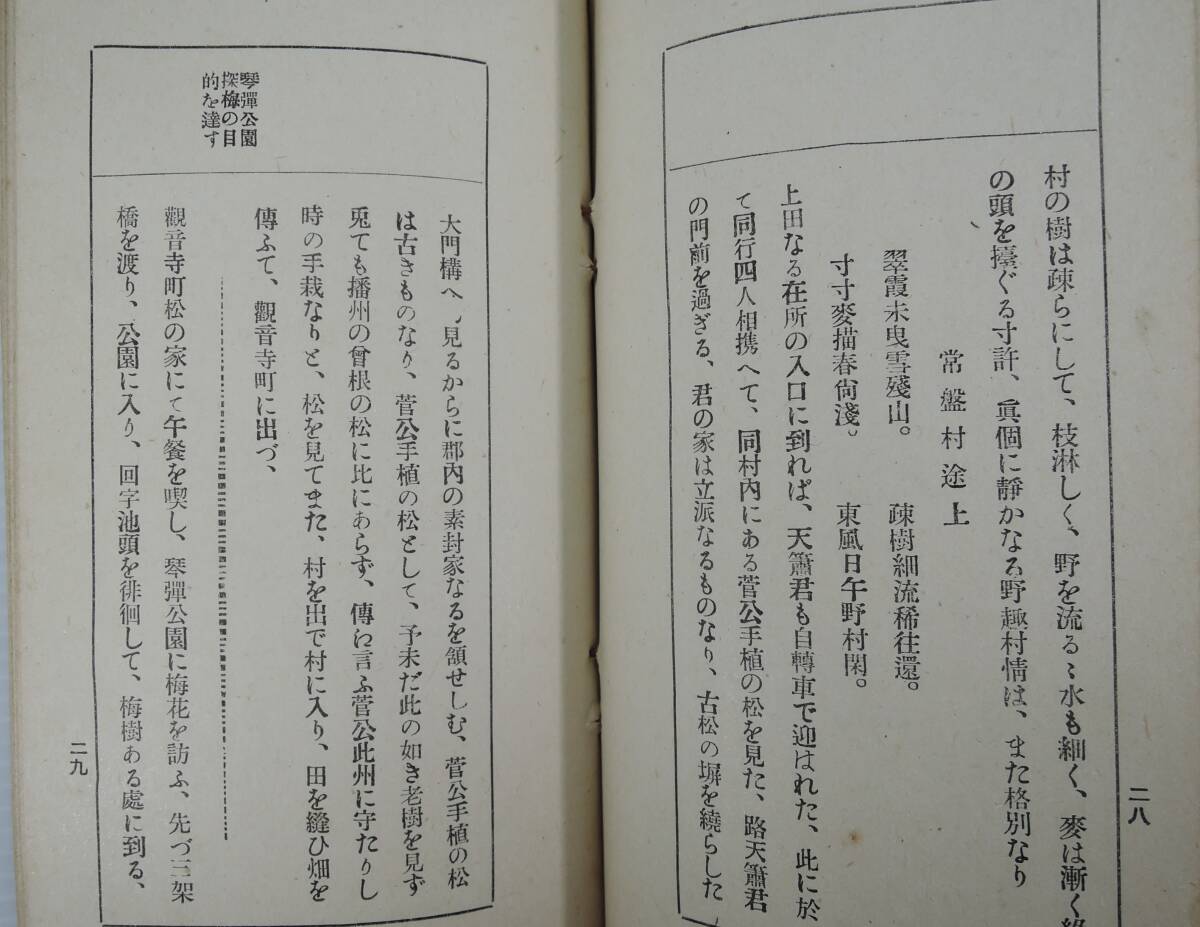 二八
村の樹は疎らにして、枝淋しく、野を流るゝ水も細く、麥は漸く
の頭を擡ぐる寸許、眞個に靜かなる野趣村情は、また格別なり
常盤村途上
翠霞未曳雪殘山。 疎樹細流稀往還。
寸寸麥描春尙淺。 東風日午野村閑。
上田なる在所の入口に到れば、天籟君も自轉車で迎はれた、此に於
て同行四人相携へて、同村内にある菅公手植の松を見た、路天籟君
の門前を過ぎる、君の家は立派なるものなり、古松の塀を繞らした
大門構へ、見るからに郡内の素封家なるを頷せしむ、菅公手植の松
は古きものなり、菅公手植の松として、予未だ此の如き老樹を見ず
兎ても播州の曾根の松に比にあらず、傳に言ふ菅公此州に守たりし
時の手栽なりと、松を見てまた、村を出で村に入り、田を縫ひ畑を
傳ふて、觀音寺町に出づ、
琴彈公園
探梅の目
的を達す
觀音寺町松の家にて午餐を喫し、琴彈公園に梅花を訪ふ、先づ三架
橋を渡り、公園に入り、回字池頭を徘徊して、梅樹ある處に到る、
二九